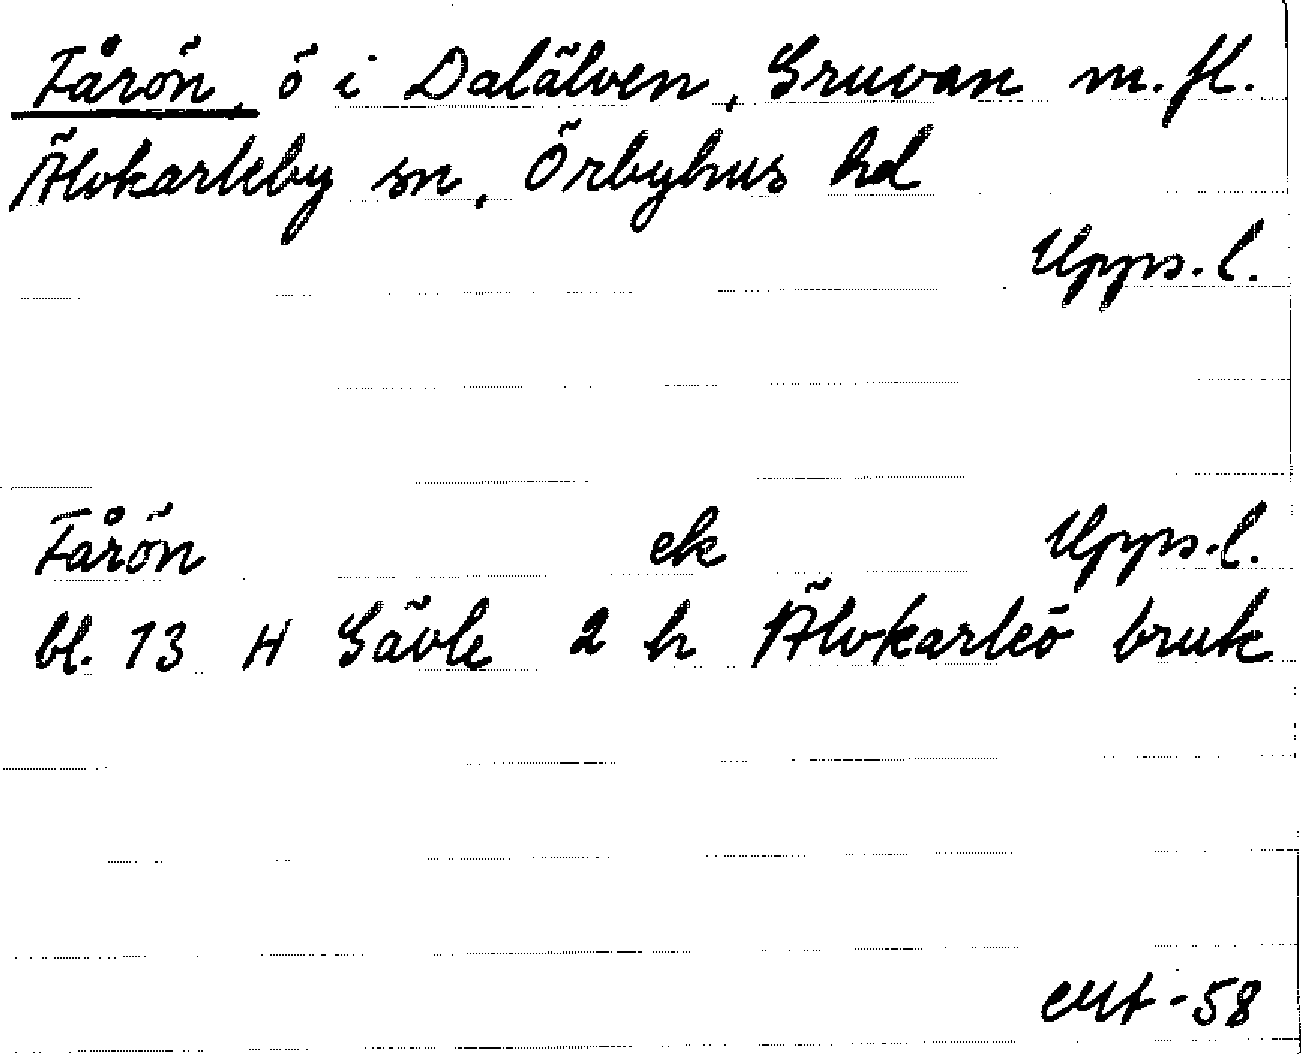 Fårön, ö i Dalälven, Gruvan m. fl.
Älvkarleby sn, Örbyhus hd
Upps. l.
Fårön ek Upps. l.
bl. 13 H Gävle 2 h Älvkarleö bruk
-58